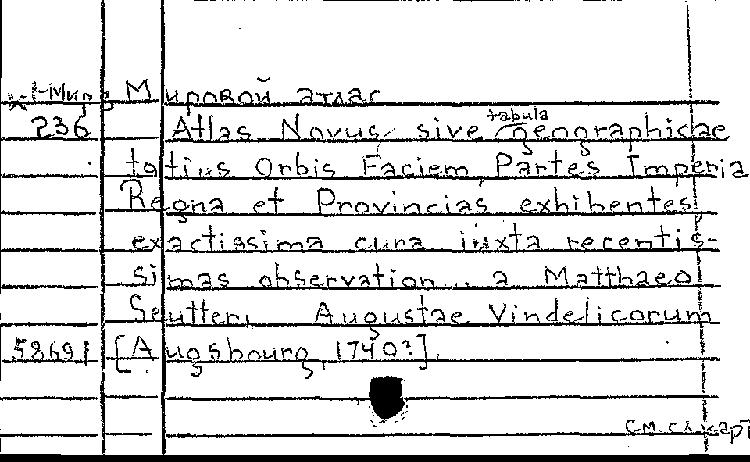 Мировой атлас
236 Atlas Novus, sive tabula Geographicae
totius Orbis Faciem, Partes Imperia
Regna et Provincias exhibentes
exactissima cura iuxta recentis-
simas observation... a Matthaeo
Seutteri, Augustae Vindelicorum
58691 [Augsbourg, 1740?].
см. сл. карт